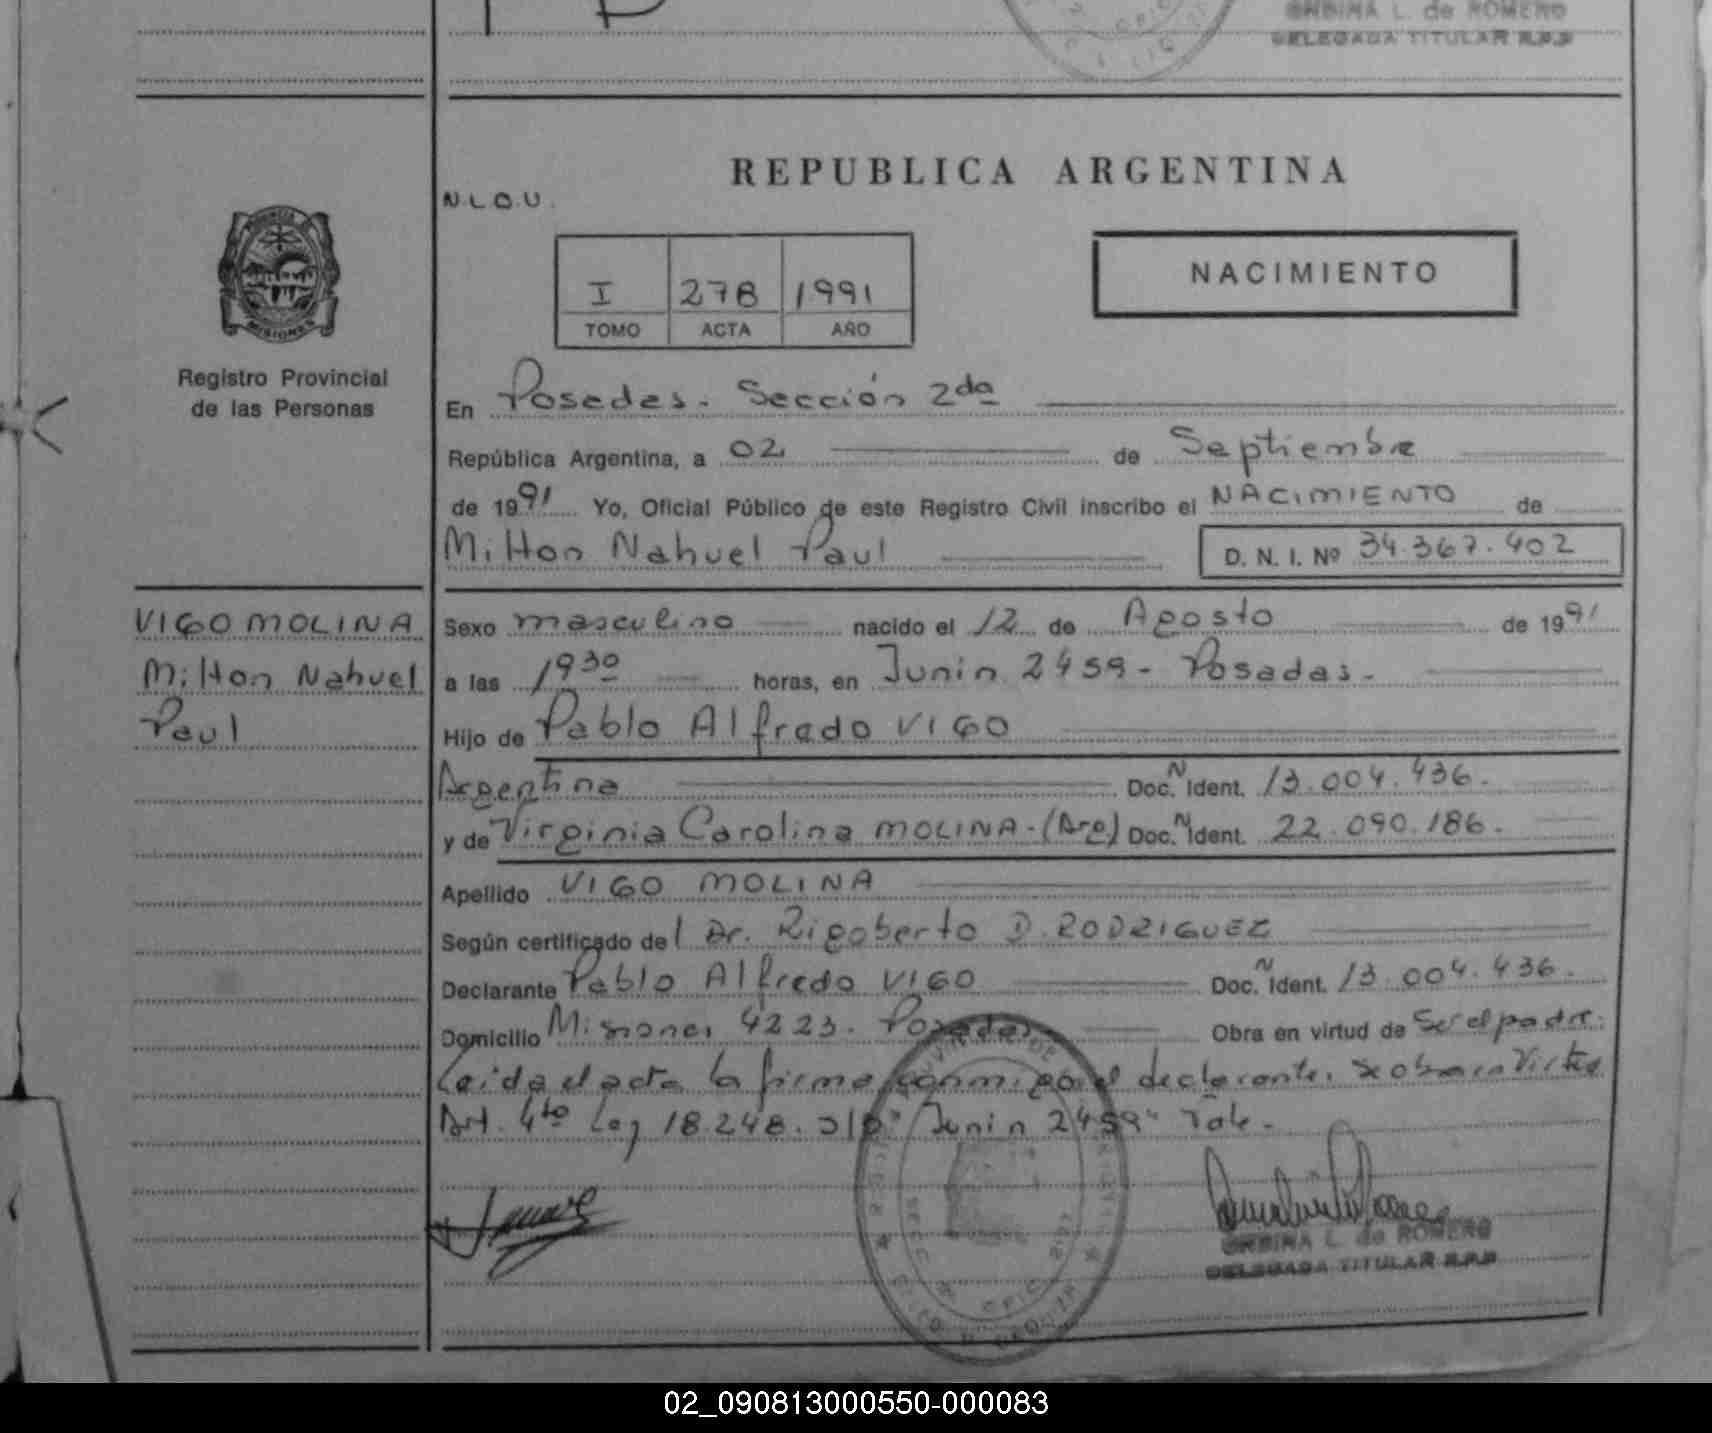 ORDINA L. de ROMERO
DELEGADA TITULAR R.P.P
REPUBLICA ARGENTINA
N.L.O.U.
I 278 1991
TOMO ACTA AÑO
NACIMIENTO
PROVINCIA DE
MISIONES
Registro Provincial
de las Personas
En Posadas. Sección 2da
República Argentina, a 02 de Septiembre
de 1991 Yo, Oficial Público de este Registro Civil inscribo el NACIMIENTO de
Milton Nahuel Paul D. N. I. Nº 34.367.402
VIGO MOLINA
Milton Nahuel
Paul
Sexo masculino nacido el 12 de Agosto de 1991
a las 1930 horas, en Junin 2459 - Posadas -
Hijo de Pablo Alfredo VIGO
Argentina Doc. N Ident. 13.004.436.
y de Virginia Carolina MOLINA - (Arg) Doc. N Ident. 22.090.186.
Apellido VIGO MOLINA
Según certificado del Dr. Rigoberto D. RODRIGUEZ
Declarante Pablo Alfredo VIGO Doc. N Ident. 13.004.436.
Domicilio Misiones 4223. Posadas. Obra en virtud de Ser el padre.
Leida el acta la firma conmigo el declarante. Se obra en Virtud
Art. 4to Ley 18.248. "Junin 2459" Vale.
L. de ROMERO
DELEGADA TITULAR R.P.P
02_090813000550-000083